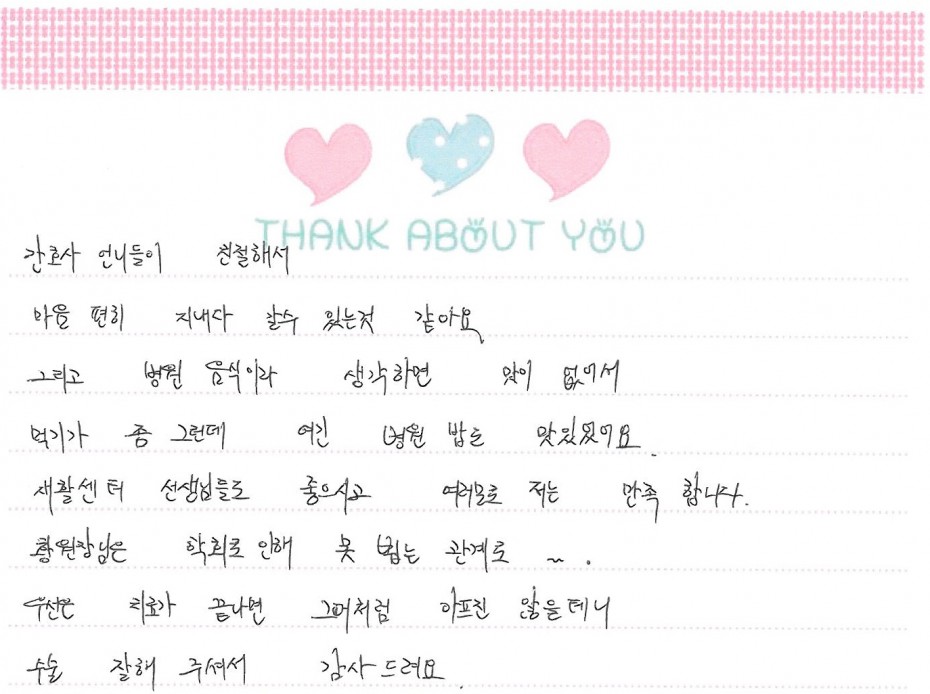 THANK ABOUT YOU
간호사 언니들이 친절해서
마음 편히 지내다 갈수 있는것 같아요
그리고 병원 음식이라 생각하면 맛이 없어서
먹기가 좀 그런데 여긴 병원 밥도 맛있었어요.
재활센터 선생님들도 좋으시고 여러모로 저는 만족 합니다.
황원장님은 학회로 인해 못 뵙는 관계로 ~ .
우선은 치료가 끝나면 그때처럼 아프진 않을테니
수술 잘해 주셔서 감사 드려요.